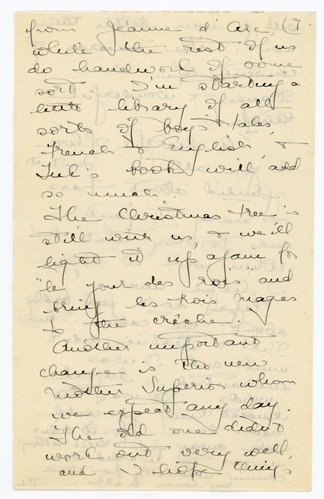 from Jeanne d'Arc, (7.
while the rest of us
do handwork of some
sort. I'm starting a
little library of all
sorts of boys' tales,
French & English, &
book will add
so much.
The Christmas tree is
still with us, & we'll
light it up again for
"le jour des rois and
bring les Rois Mages
to the crèche!
Another important
change is the new
Mother Superior whom
we expect any day.
The old one didn't
work out very well,
and I hope things